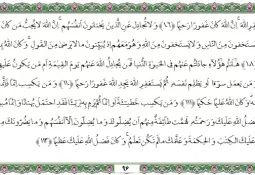 فِرِ اللَّهَ إِنَّ اللَّهَ كَانَ غَفُورًا رَحِيمًا ﴿١٠٦﴾ وَلَا تُجَادِلْ عَنِ الَّذِينَ يَخْتَانُونَ أَنْفُسَهُمْ إِنَّ اللَّهَ
يَسْتَخْفُونَ مِنَ النَّاسِ وَلَا يَسْتَخْفُونَ مِنَ اللَّهِ وَهُوَ مَعَهُمْ إِذْ يُبَيِّتُونَ مَا لَا يَرْضَى مِنَ الْقَوْلِ وَكَانَ اللَّهُ
﴿١٠٨﴾ هَا أَنْتُمْ هَؤُلَاءِ جَادَلْتُمْ عَنْهُمْ فِي الْحَيَاةِ الدُّنْيَا فَمَنْ يُجَادِلُ اللَّهَ عَنْهُمْ يَوْمَ الْقِيَامَةِ أَمْ مَنْ يَكُونُ عَلَيْهِمْ
وَمَنْ يَعْمَلْ سُوءًا أَوْ يَظْلِمْ نَفْسَهُ ثُمَّ يَسْتَغْفِرِ اللَّهَ يَجِدِ اللَّهَ غَفُورًا رَحِيمًا ﴿١١٠﴾ وَمَنْ يَكْسِبْ إِثْمًا فَإِنَّمَا
وَكَانَ اللَّهُ عَلِيمًا حَكِيمًا ﴿١١١﴾ وَمَنْ يَكْسِبْ خَطِيئَةً أَوْ إِثْمًا ثُمَّ يَرْمِ بِهِ بَرِيئًا فَقَدِ احْتَمَلَ بُهْتَانًا وَإِثْمًا
اللَّهِ عَلَيْكَ وَرَحْمَتُهُ لَهَمَّتْ طَائِفَةٌ مِنْهُمْ أَنْ يُضِلُّوكَ وَمَا يُضِلُّونَ إِلَّا أَنْفُسَهُمْ وَمَا يَضُرُّونَكَ مِنْ
عَلَيْكَ الْكِتَابَ وَالْحِكْمَةَ وَعَلَّمَكَ مَا لَمْ تَكُنْ تَعْلَمُ وَكَانَ فَضْلُ اللَّهِ عَلَيْكَ عَظِيمًا ﴿١١٣﴾
٩٦